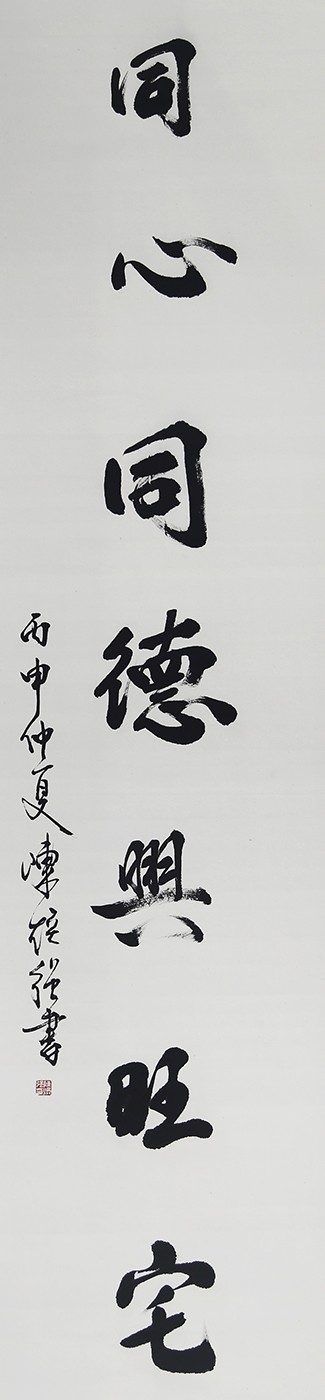 同心同德興旺宅
丙申仲夏陳經強書